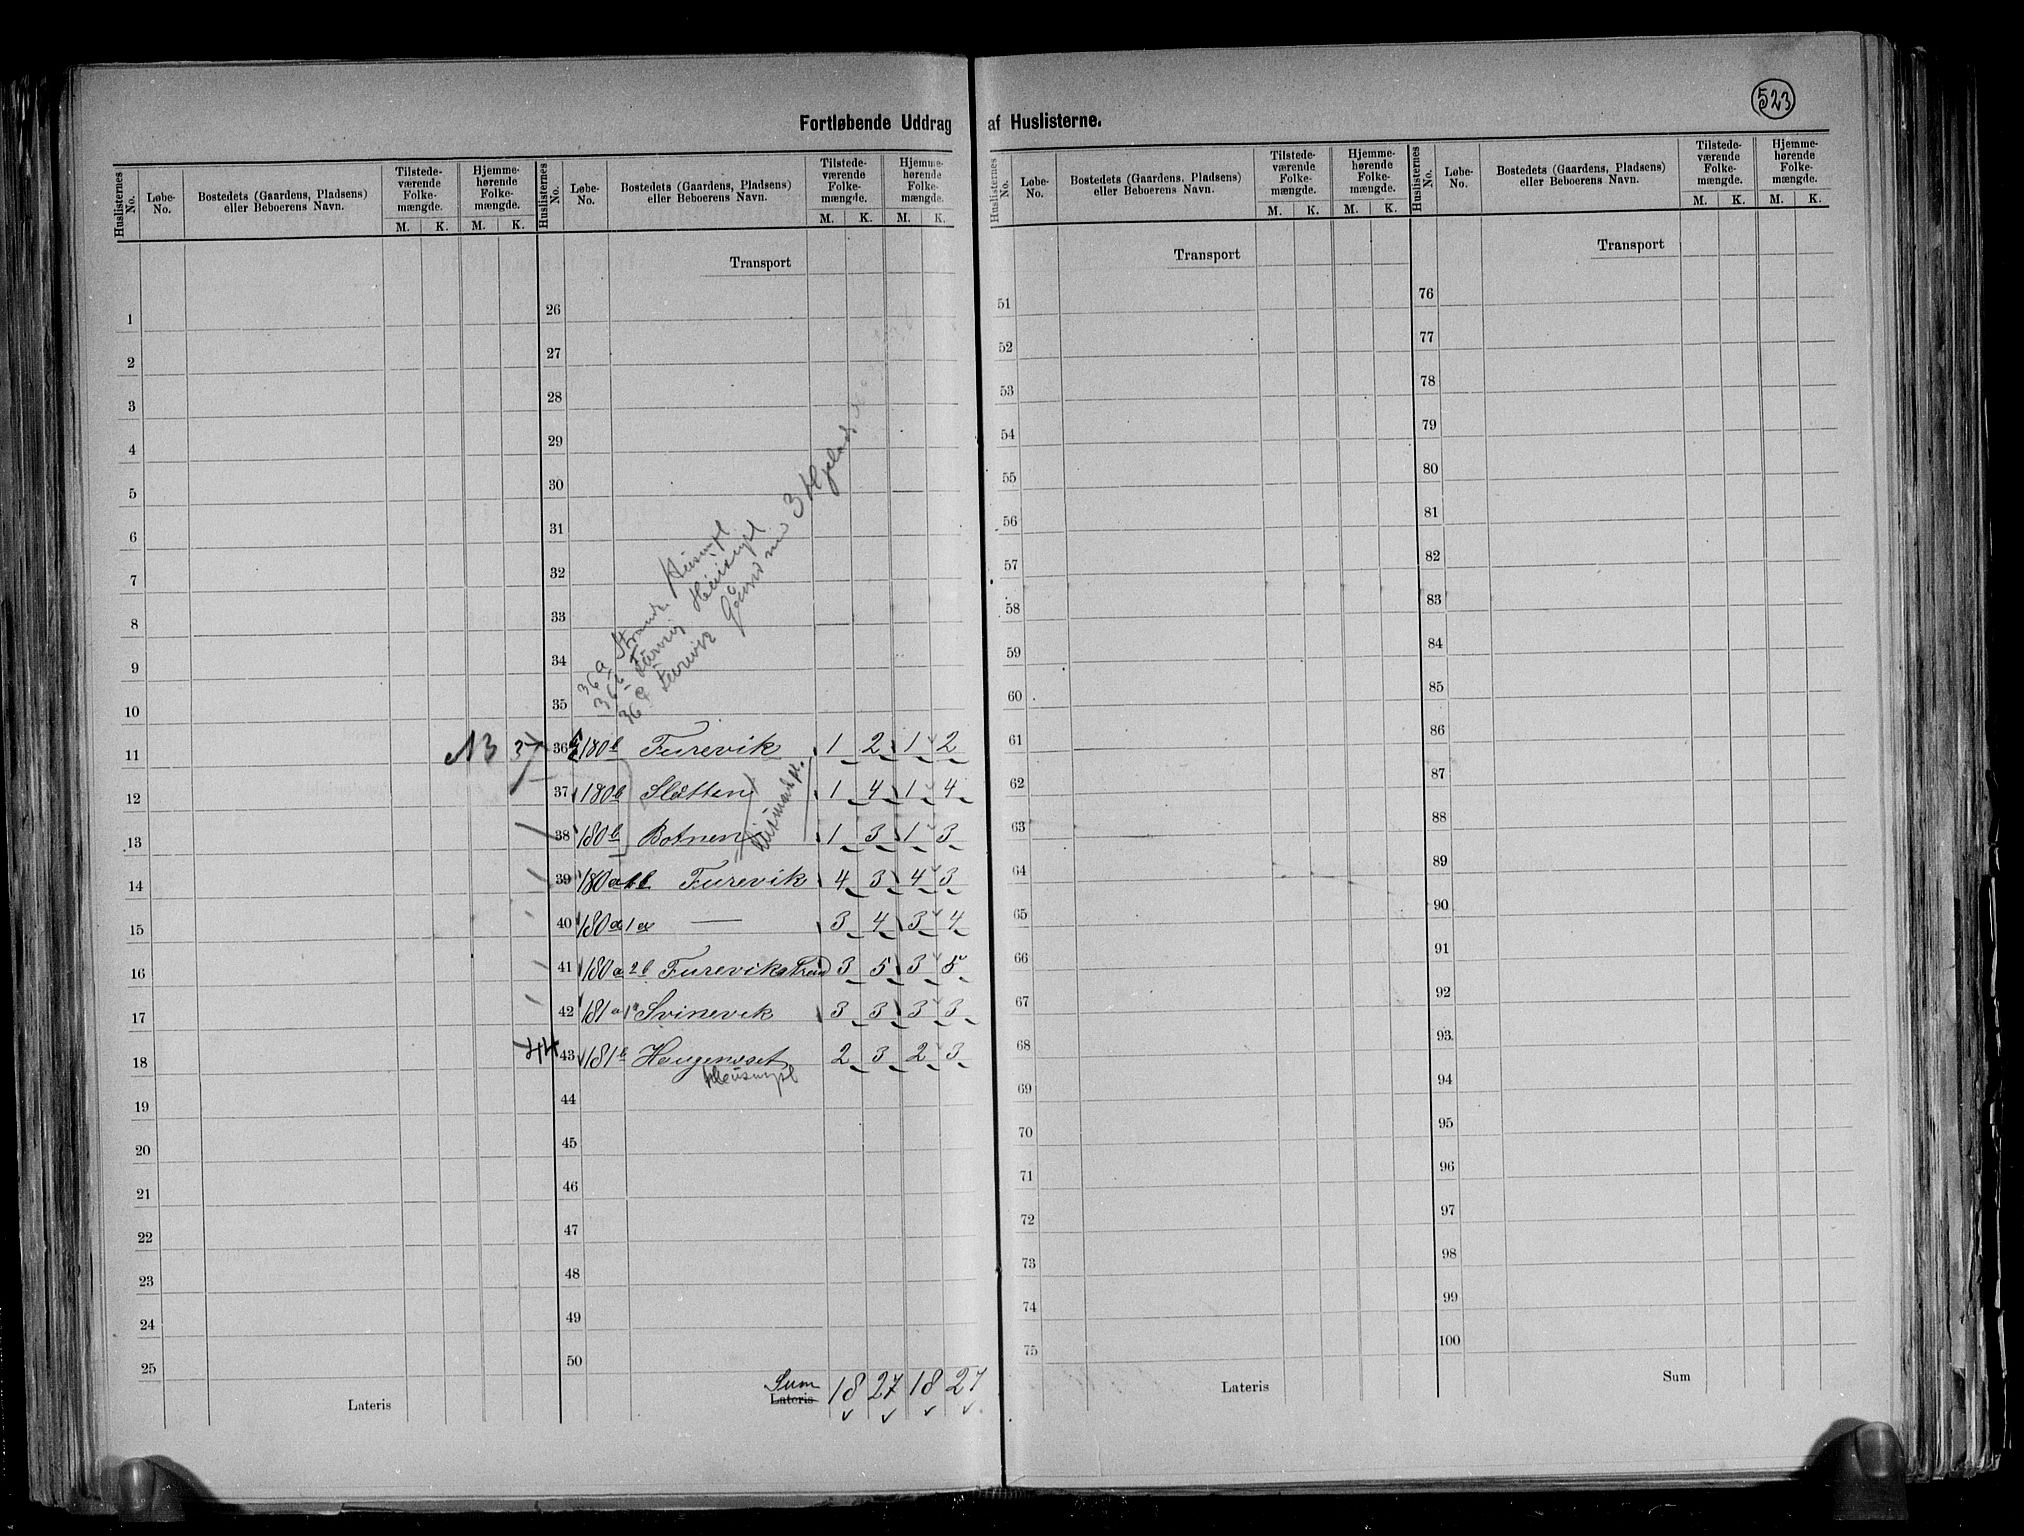 523
Fortløbende Uddrag af Huslisterne.
Huslisternes No. Løbe-No. Bostedets (Gaardens, Pladsens) eller Beboerens Navn. Tilstede-værende Folke-mængde. M. K. Hjemme-hørende Folke-mængde. M. K.
Huslisternes No. Løbe-No. Bostedets (Gaardens, Pladsens) eller Beboerens Navn. Tilstede-værende Folke-mængde. M. K. Hjemme-hørende Folke-mængde. M. K.
Huslisternes No. Løbe-No. Bostedets (Gaardens, Pladsens) eller Beboerens Navn. Tilstede-værende Folke-mængde. M. K. Hjemme-hørende Folke-mængde. M. K.
Huslisternes No. Løbe-No. Bostedets (Gaardens, Pladsens) eller Beboerens Navn. Tilstede-værende Folke-mængde. M. K. Hjemme-hørende Folke-mængde. M. K.
1
2
3
4
5
6
7
8
9
10
11
12
13
14
15
16
17
18
19
20
21
22
23
24
25
Lateris
Transport
26
27
28
29
30
31
32
33
34
35
36a Strand. Husmpl
36b Furevig Husmpl
36c Furevik Gaard
NB 37
36 180b Furevik 1 2 1 2
37 180b Slætten 1 4 1 4
38 180b Botnen 1 3 1 3
Husmandspl.
39 180a Furevik 4 3 4 3
40 180a 1a — 3 4 3 4
41 180a 2b Furevikstrand 3 5 3 5
42 181a 1a Svinevik 3 3 3 3
44
43 181b Haugeneset 2 3 2 3
Husmpl
44
45
46
47
48
49
50
Sum
Lateris 18 27 18 27
Transport
51
52
53
54
55
56
57
58
59
60
61
62
63
64
65
66
67
68
69
70
71
72
73
74
75
Lateris
Transport
76
77
78
79
80
81
82
83
84
85
86
87
88
89
90
91
92
93
94
95
96
97
98
99
100
Sum